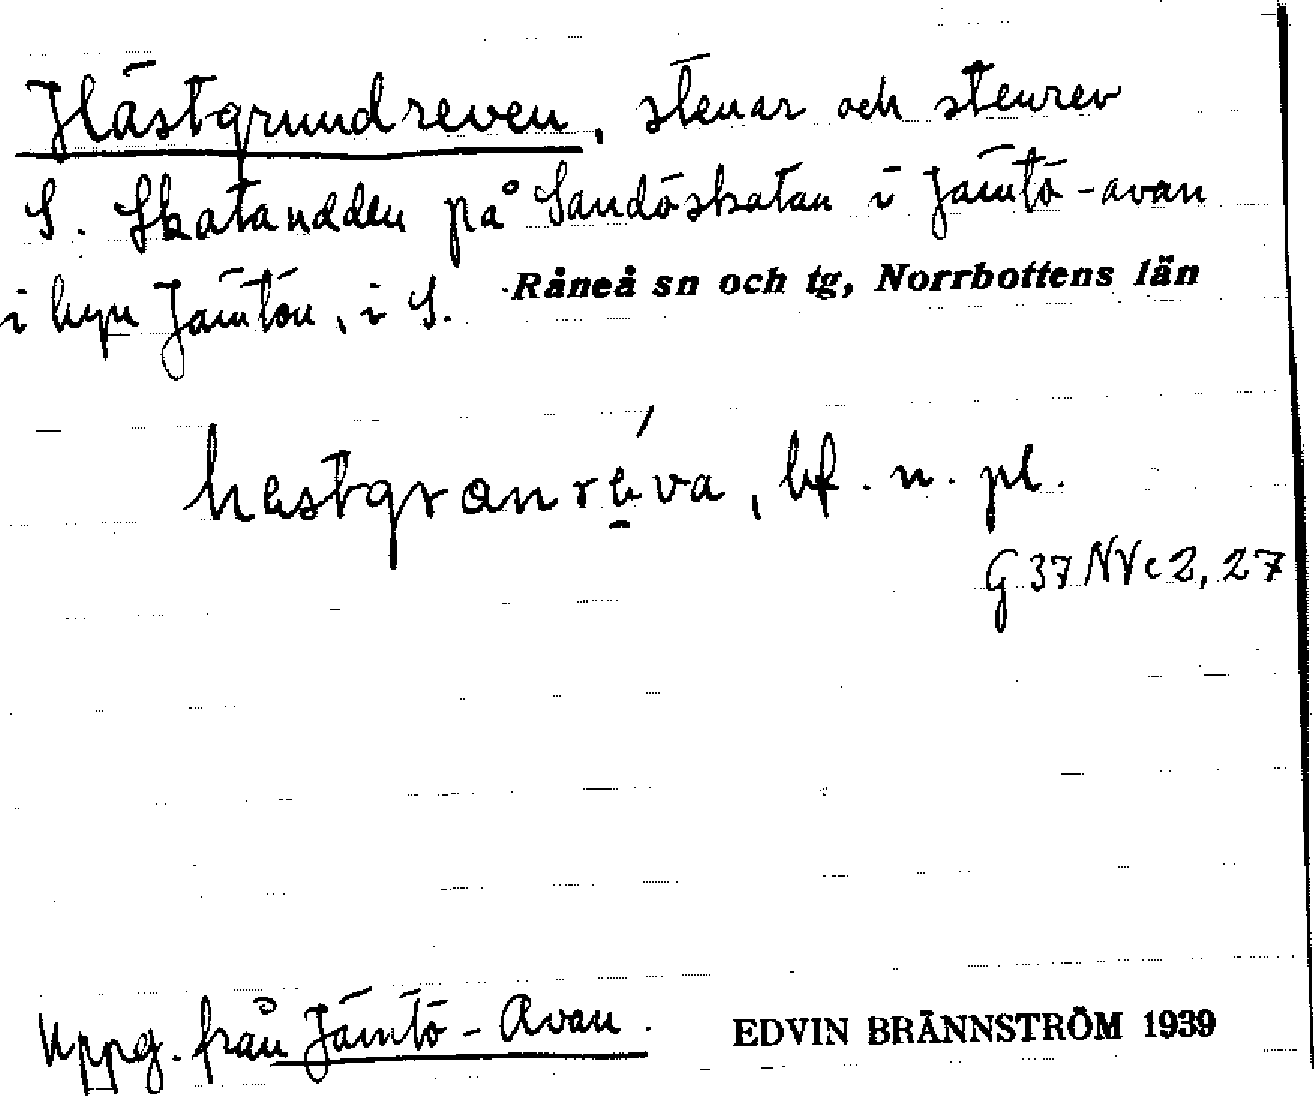 Hästgrundreven, stenar och stenrev
S. Skatandden på Sandöskatan i Jämtö-avan
i byn Jämtön, i S. Råneå sn och tg, Norrbottens län
hestgrænréva, bf. n. pl.
G 37 NV c 2, 27
Uppg. från Jämtö-Avan. EDVIN BRÄNNSTRÖM 1939